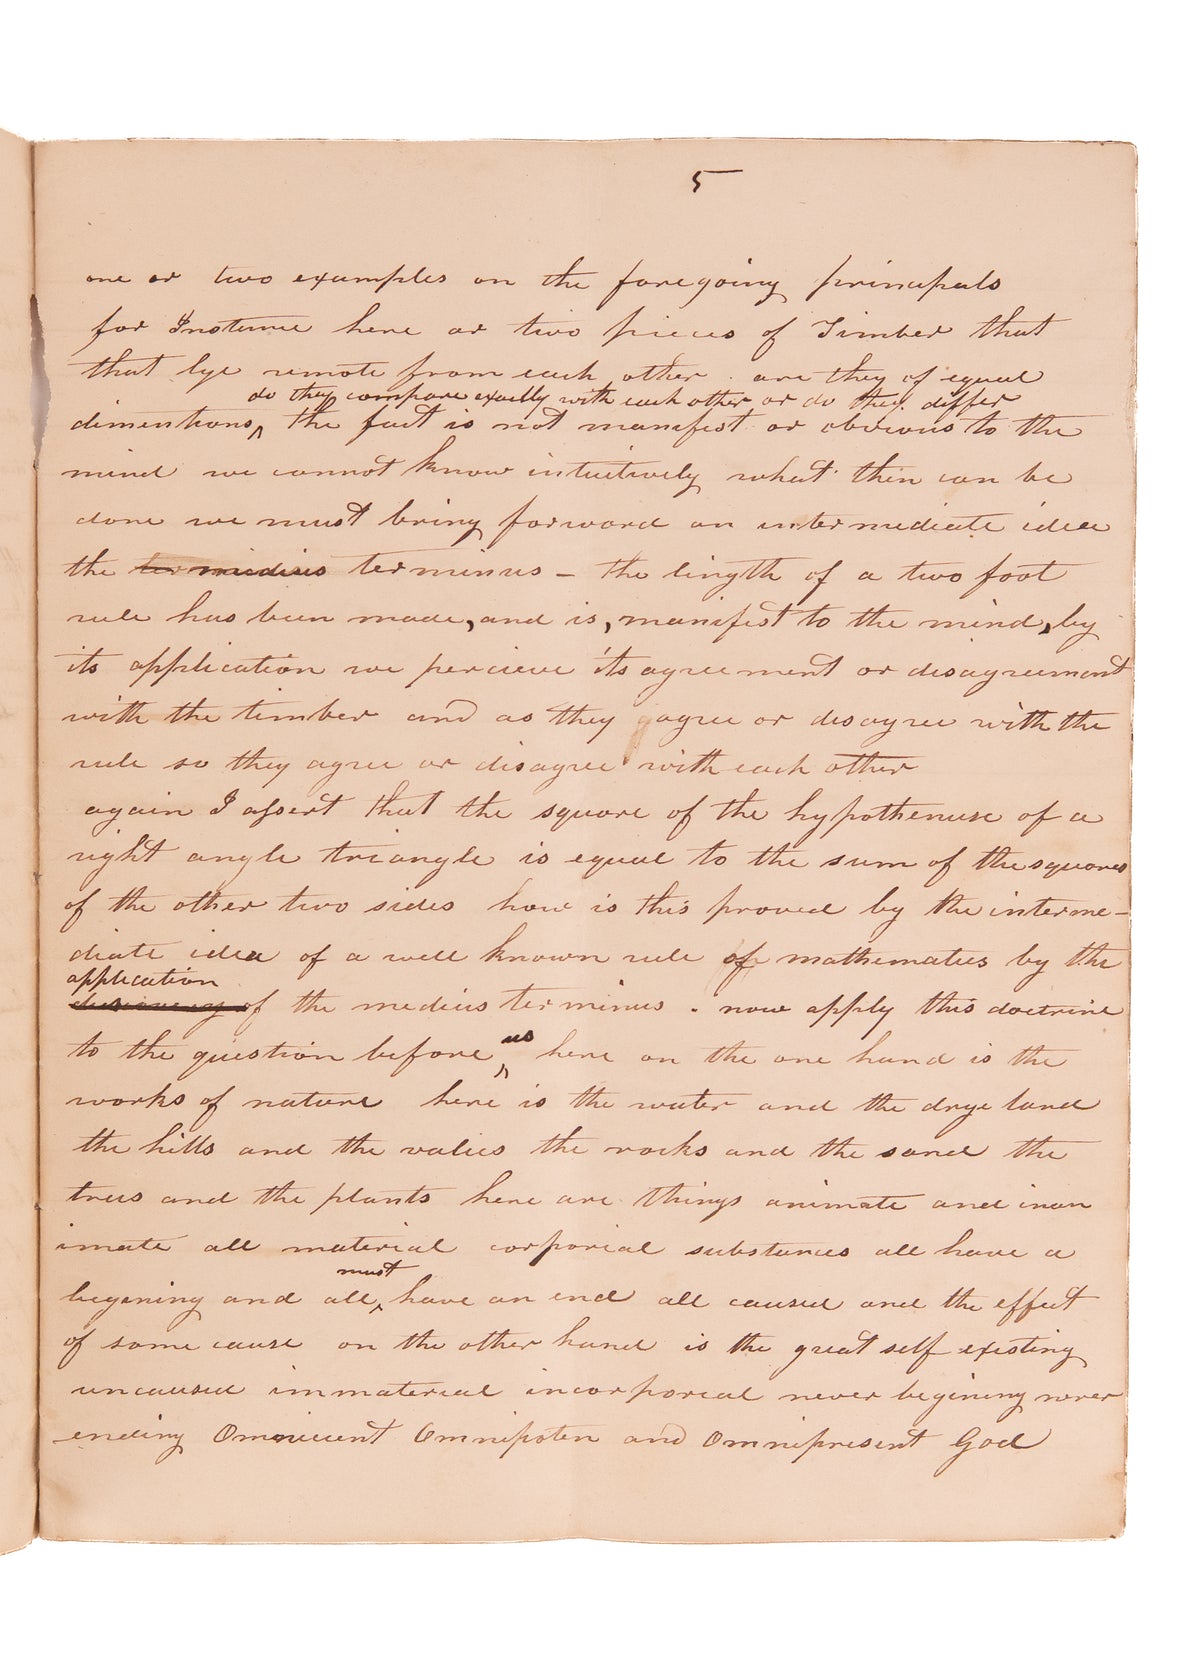 5
one or two examples on the foregoing principals
for Instance here ar two pieces of Timber that
that lye remote from each other . are they of equal
do they compare exactly with each other or do they differ
dimentions ^ the fact is not manifest or obvious to the
mind we cannot know intuitively what then can be
done we must bring forward an intermediate idea
the medius terminus – the length of a two foot
rule has been made, and is, manifest to the mind, by
its application we percieve its agreement or disagreement
with the timber and as they agree or disagree with the
rule so they agree or disagree with each other
again I assert that the square of the hypothenuse of a
right angle triangle is equal to the sum of the squares
of the other two sides how is this proved by the interme–
diate idea of a well known rule of mathematics by the
application
of the medius terminus . now apply this doctrine
us
to the question before ^ here on the one hand is the
works of nature here is the water and the drye land
the hills and the valies the rocks and the sand the
trees and the plants here are things animate and inan
imate all material corporial substances all have a
must
begening and all ^ have an end all caused and the effect
of some cause on the other hand is the great self existing
uncaused immaterial incorporeal never begining never
ending Omnicient Omnipoten and Omnipresent God